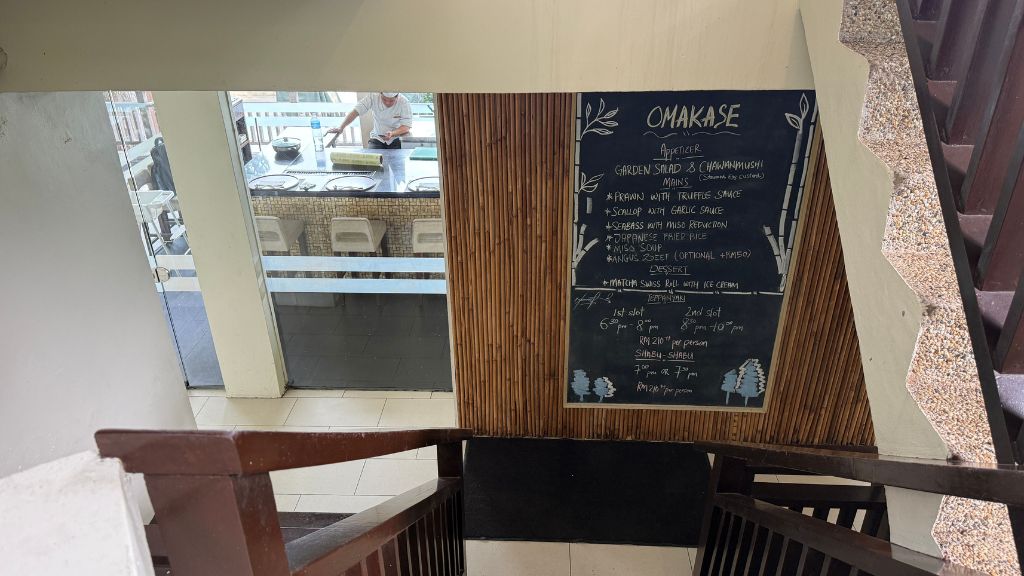 OMAKASE
APPETIZER
GARDEN SALAD & CHAWANMUSHI
(Steamed Egg Custard)
MAINS
* PRAWN WITH TRUFFLE SAUCE
* SCALLOP WITH GARLIC SAUCE
* SEABASS WITH MISO REDUCTION
* JAPANESE FRIED RICE
* MISO SOUP
* ANGUS BEEF (OPTIONAL +RM50)
DESSERT
* MATCHA SWISS ROLL WITH ICE CREAM
TEPPANYAKI
1st slot 2nd slot
6:30 pm - 8:00 pm 8:30 pm - 10:00 pm
RM 210 per person
SHABU-SHABU
7:00 pm OR 7:30 pm
RM 210 per person